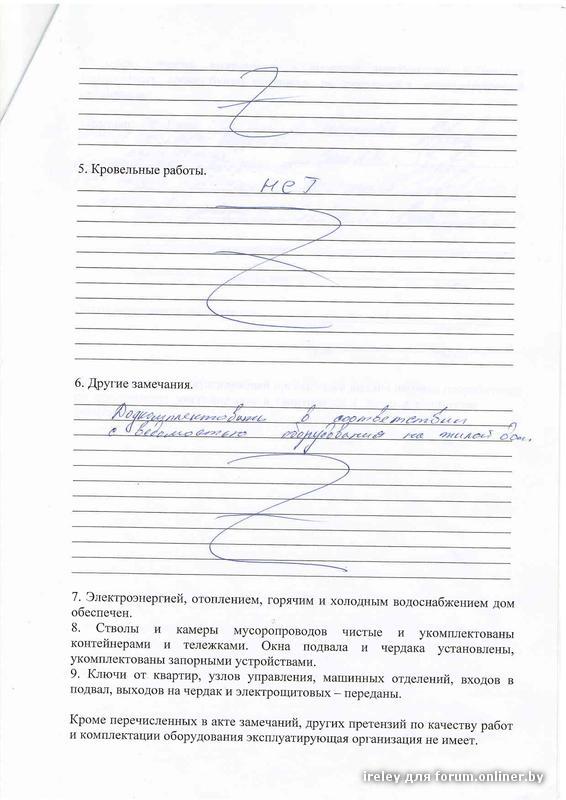 5. Кровельные работы.
нет
6. Другие замечания.
Доукомплектовать в соответствии
с ведомостью оборудования на жилой дом.
7. Электроэнергией, отоплением, горячим и холодным водоснабжением дом
обеспечен.
8. Стволы и камеры мусоропроводов чистые и укомплектованы
контейнерами и тележками. Окна подвала и чердака установлены,
укомплектованы запорными устройствами.
9. Ключи от квартир, узлов управления, машинных отделений, входов в
подвал, выходов на чердак и электрощитовых – переданы.
Кроме перечисленных в акте замечаний, других претензий по качеству работ
и комплектации оборудования эксплуатирующая организация не имеет.
ireley для forum.onliner.by